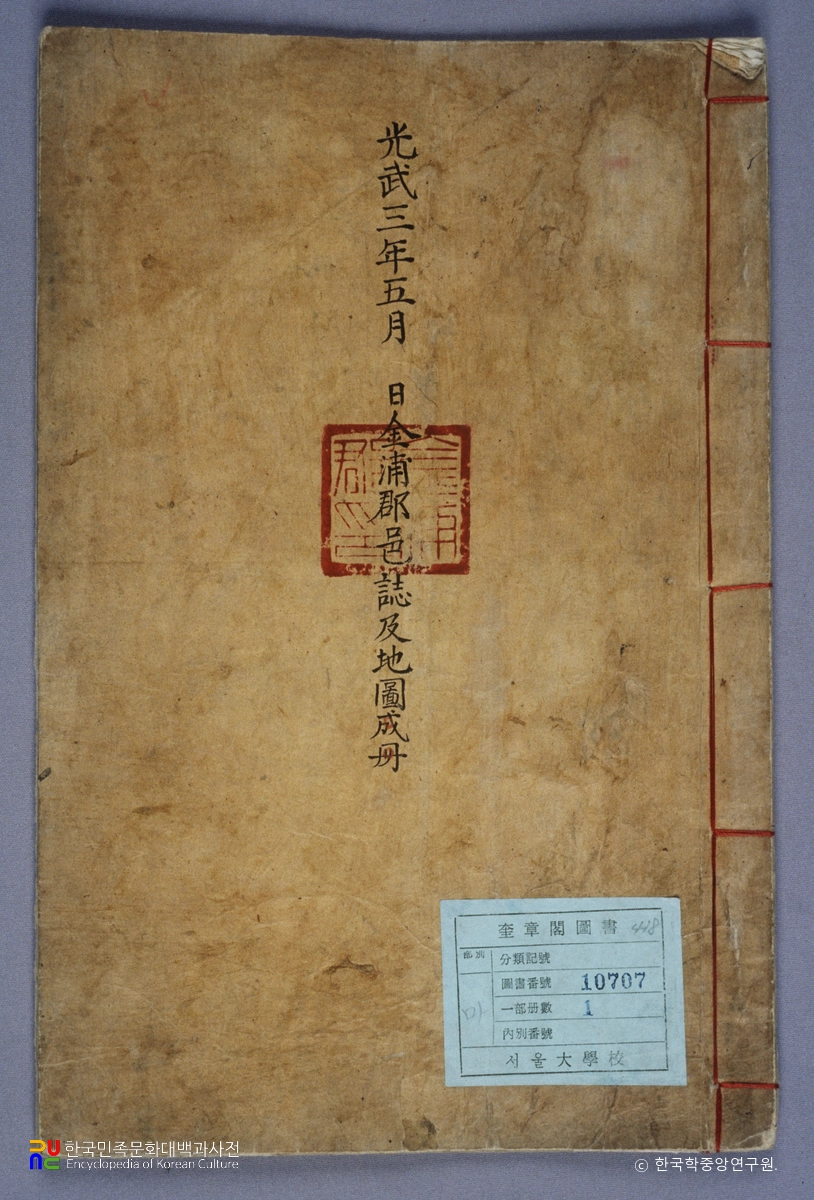 光武三年五月 日金浦郡邑誌及地圖成冊
奎章閣圖書
448
部別
分類記號
圖書番號 10707
一部册數 1
內別番號
마
서울大學校
한국민족문화대백과사전
Encyclopedia of Korean Culture
© 한국학중앙연구원.